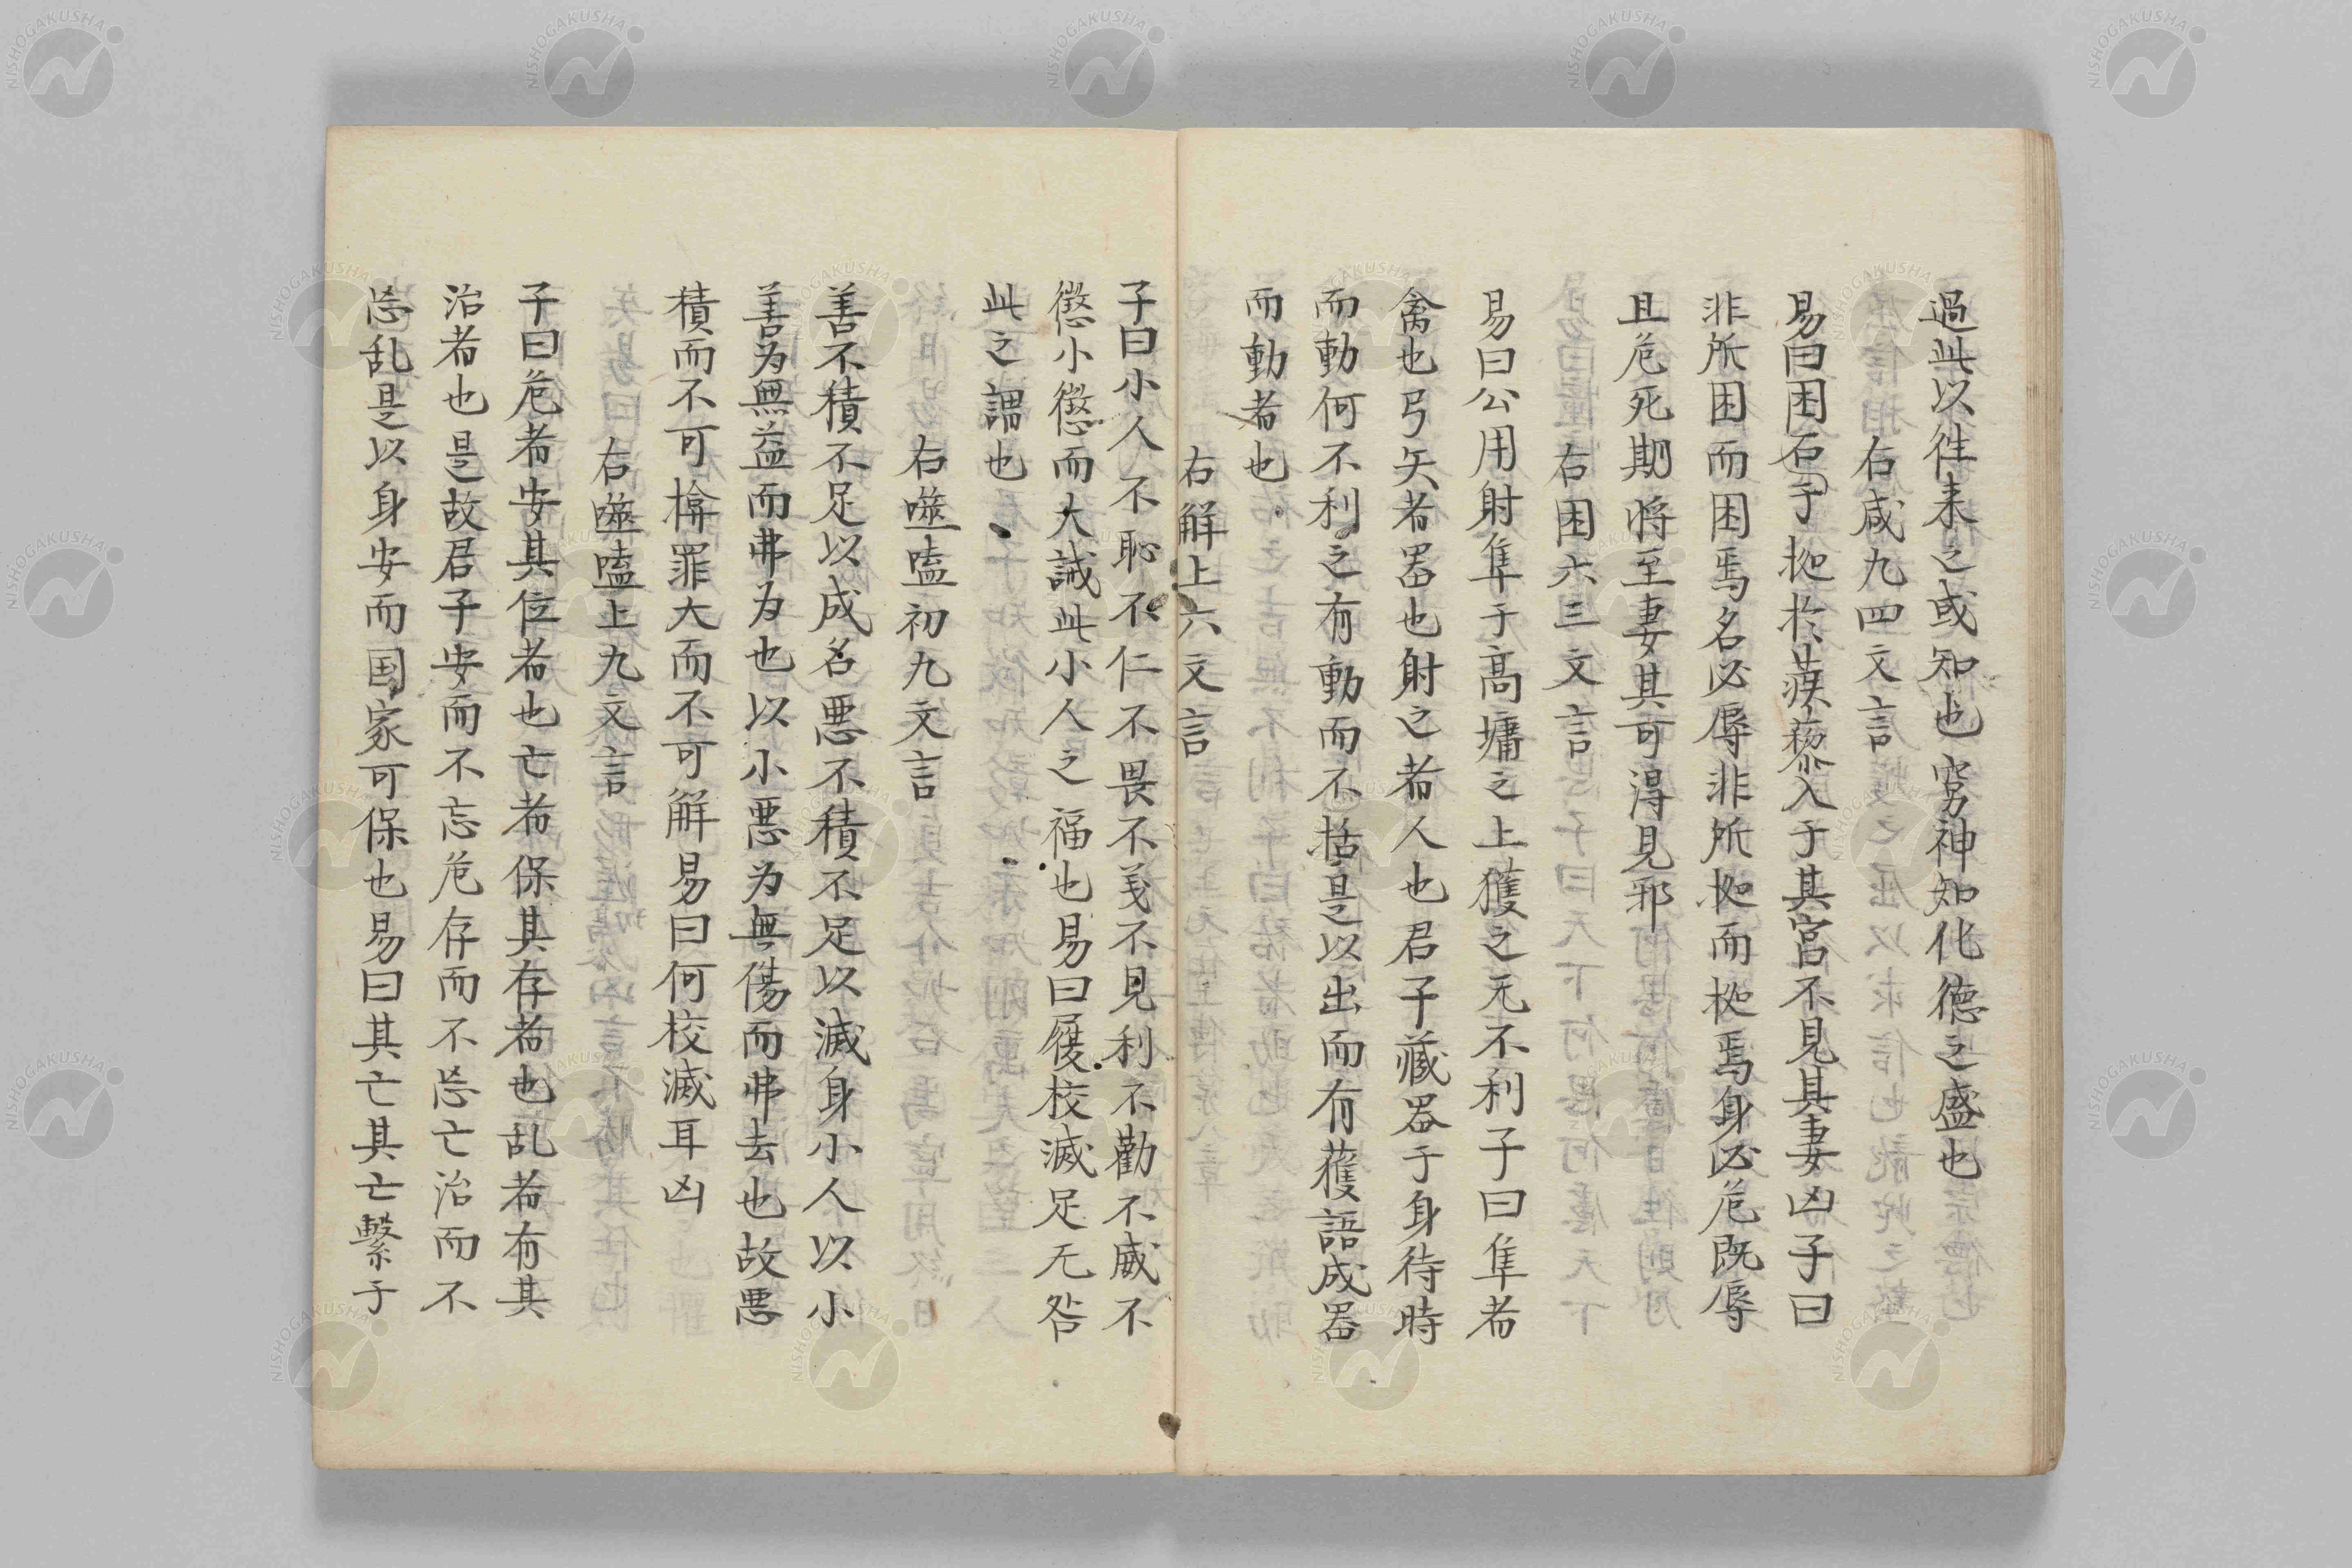 過此以往未之或知也窮神知化徳之盛也
右咸九四文言
易曰困石于拠於蒺藜入于其宮不見其妻凶子曰
非所困而困焉名必辱非所拠而拠焉身必危既辱
且危死期将至妻其可得見邪
右困六三文言
易曰公用射隼于高墉之上獲之无不利子曰隼者
禽也弓矢者器也射之者人也君子藏器于身待時
而動何不利之有動而不括是以出而有獲語成器
而動者也
右解上六文言
子曰小人不恥不仁不畏不義不見利不勸不威不
懲小懲而大誡此小人之福也易曰屨校滅足无咎
此之謂也
右噬嗑初九文言
善不積不足以成名悪不積不足以滅身小人以小
善为無益而弗为也以小悪为無傷而弗去也故悪
積而不可揜罪大而不可解易曰何校滅耳凶
右噬嗑上九文言
子曰危者安其位者也亡者保其存者也乱者有其
治者也是故君子安而不忘危存而不忘亡治而不
忘乱是以身安而国家可保也易曰其亡其亡繋于
NISHOGAKUSHA